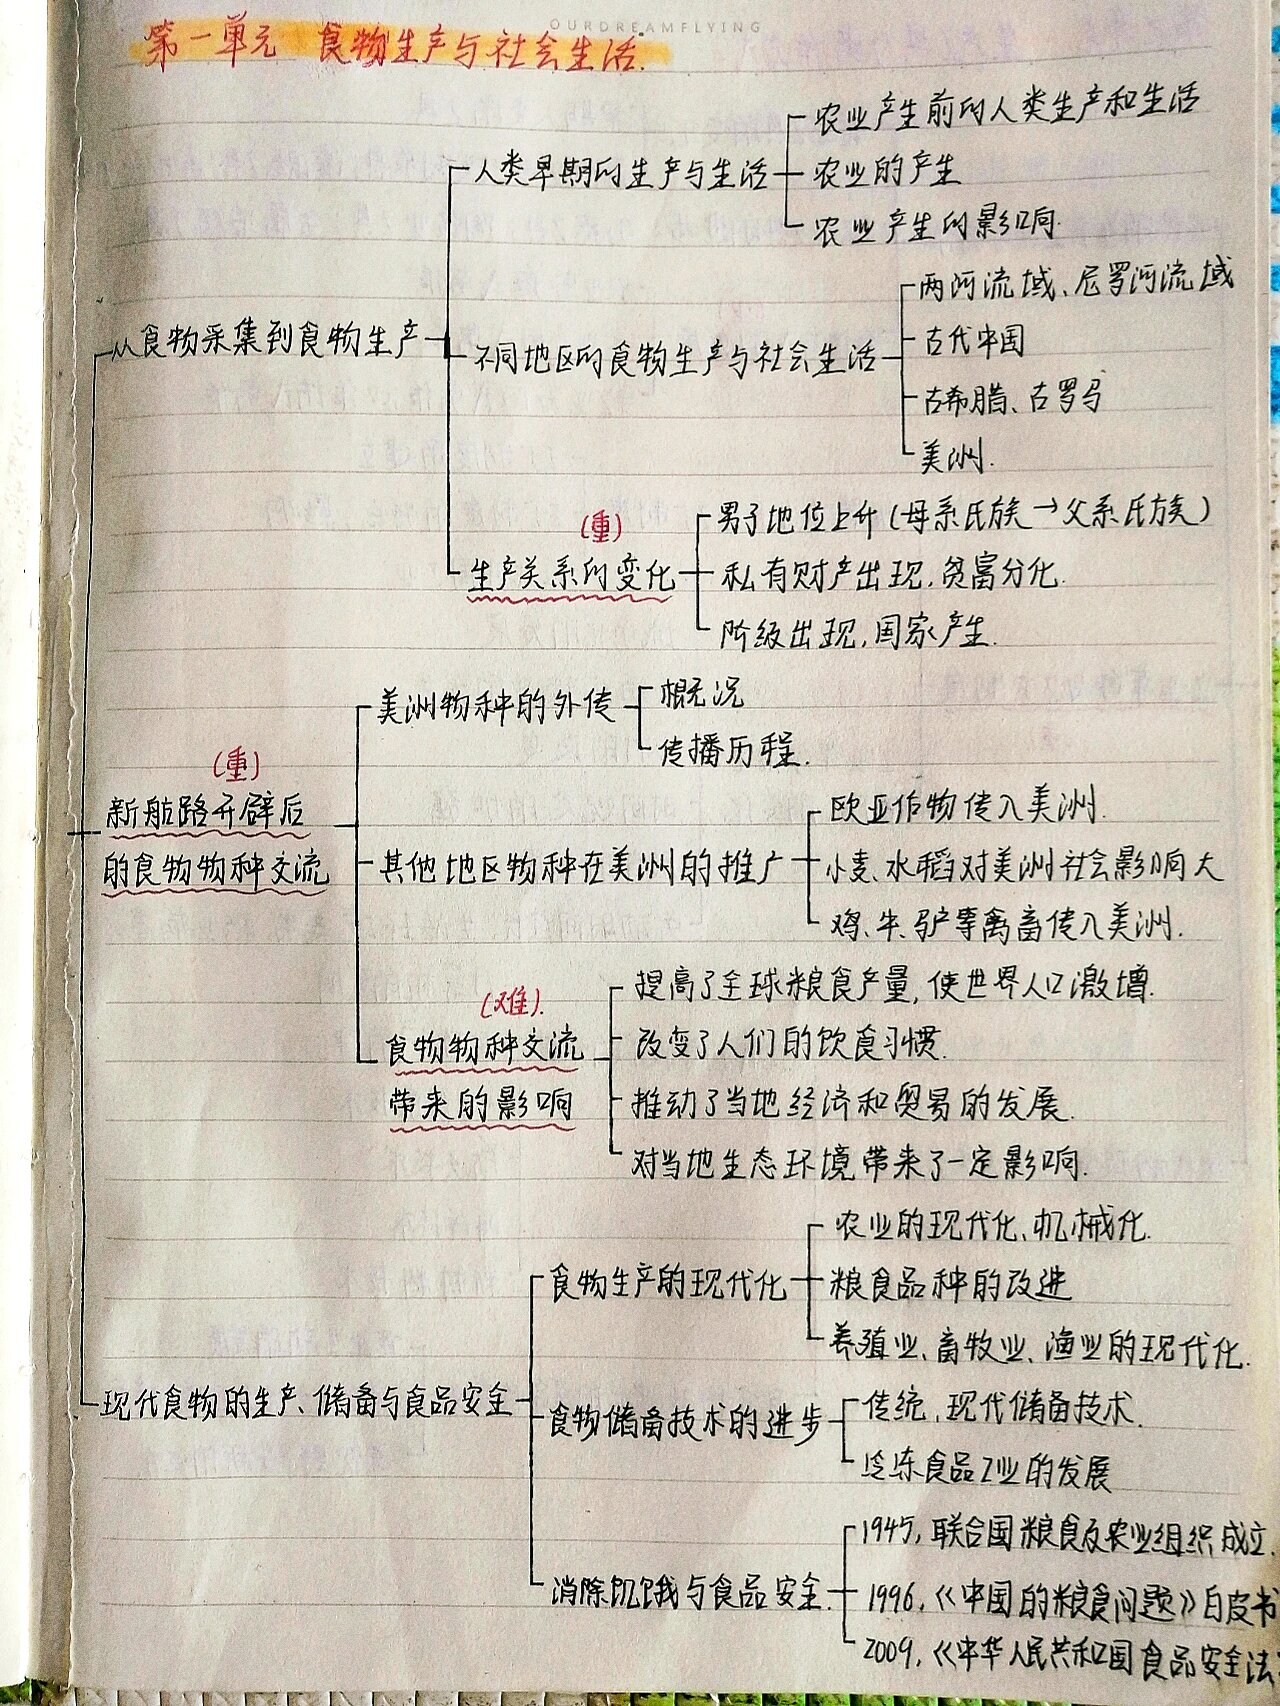 OURDREAMFLYING
第一单元 食物生产与社会生活.
农业产生前的人类生产和生活
人类早期的生产与生活
农业的产生
农业产生的影响.
从食物采集到食物生产
不同地区的食物生产与社会生活
两河流域、尼罗河流域
古代中国
古希腊、古罗马
美洲.
(重)
生产关系的变化
男子地位上升(母系氏族→父系氏族)
私有财产出现,贫富分化.
阶级出现,国家产生.
(重)
新航路开辟后
的食物物种交流
美洲物种的外传
概况
传播历程.
其他地区物种在美洲的推广
欧亚作物传入美洲.
小麦、水稻对美洲社会影响大
鸡、牛、驴等禽畜传入美洲.
(难).
食物物种交流
带来的影响
提高了全球粮食产量,使世界人口激增.
改变了人们的饮食习惯.
推动了当地经济和贸易的发展.
对当地生态环境带来了一定影响.
现代食物的生产、储备与食品安全
食物生产的现代化
农业的现代化、机械化.
粮食品种的改进
养殖业、畜牧业、渔业的现代化.
食物储备技术的进步
传统,现代储备技术.
冷冻食品工业的发展
消除饥饿与食品安全.
1945,联合国粮食及农业组织成立.
1996,《中国的粮食问题》白皮书
2009,《中华人民共和国食品安全法